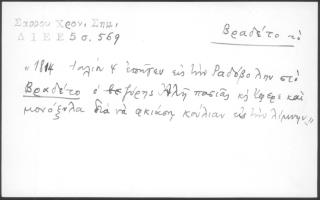 Σπύρου Χρον. Σημ.
ΔΙΕΕ 5 σ. 569
Βραδέτο τό
«1814 Ἰουλίου 4 ἐπῆγεν εἰς τὴν Ραδόβολην στὸ
Βραδέτο ὁ βεζύρης Ἀλῆ πασιᾶς κὴ ἤφερε καὶ
μονόξυλα διὰ νὰ φκιάση κούλιαν εἰς τὴν λίμνην»